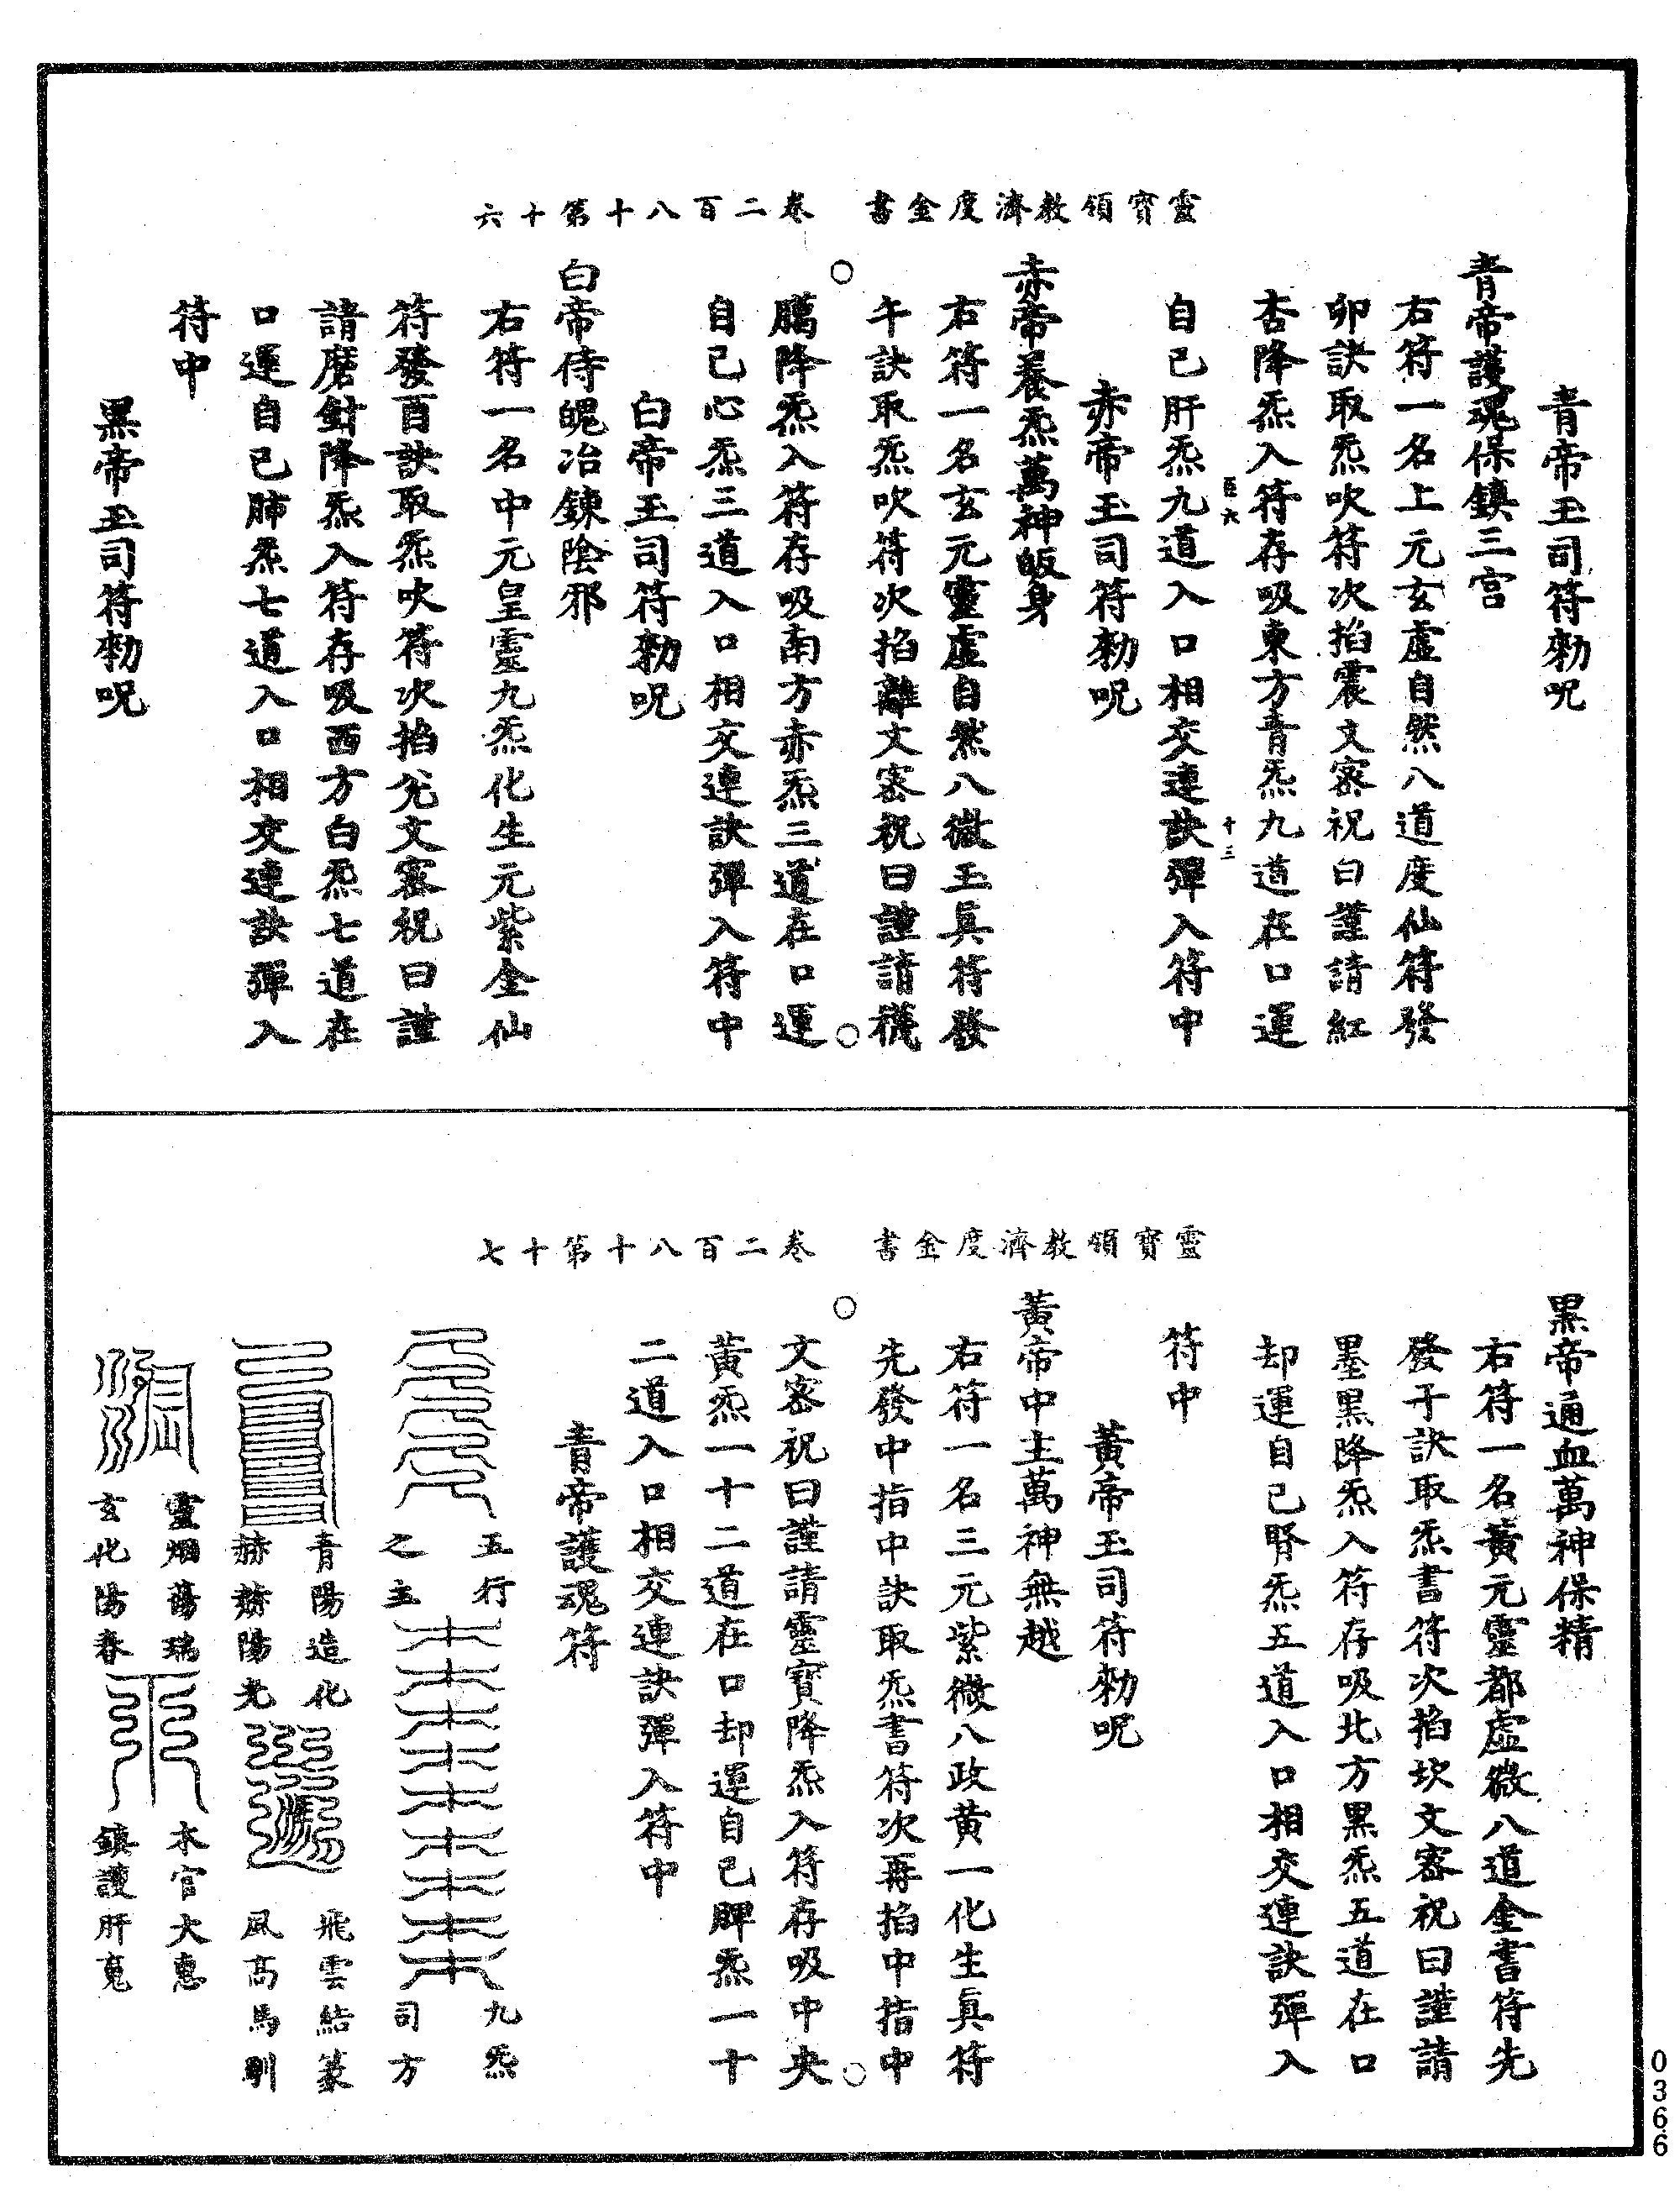 靈寶領教濟度金書　卷二百八十第十六
青帝玉司符勑呪
青帝護魂保鎮三宮
右符一名上元玄虛自然八道度仙符發
卯訣取炁吹符次掐震文密祝曰謹請紅
杏降炁入符存吸東方青炁九道在口運
十三
自己肝炁九道入口相交連訣彈入符中
赤帝玉司符勑呪
赤帝養炁萬神皈身
右符一名玄元靈虛自然八微玉真符發
午訣取炁吹符次掐離文密祝曰謹請穖
臈降炁入符存吸南方赤炁三道在口運
自己心炁三道入口相交連訣彈入符中
白帝玉司符勑呪
白帝侍魄冶鍊陰邪
右符一名中元皇靈九炁化生元紫金仙
符發酉訣取炁吹符次掐兊文密祝曰謹
請磨鉗降炁入符存吸西方白炁七道在
口運自己肺炁七道入口相交連訣彈入
符中
黑帝玉司符勑呪
靈寶領教濟度金書　卷二百八十第十七
黑帝通血萬神保精
右符一名黃元靈都虛微八道金書符先
發子訣取炁書符次掐坎文密祝曰謹請
墨黑降炁入符存吸北方黑炁五道在口
却運自己腎炁五道入口相交連訣彈入
符中
黃帝玉司符勑呪
黃帝中主萬神無越
右符一名三元紫微八政黃一化生真符
先發中指中訣取炁書符次再掐中指中
文密祝曰謹請靈寶降炁入符存吸中央
黃炁一十二道在口却運自己脾炁一十
二道入口相交連訣彈入符中
青帝護魂符
五行之主
九炁司方
青陽造化赫赫陽光
飛雲結篆風高馬剛
靈烟蕩瑞玄化陽春
本官大惠鎮護肝䰟
0366